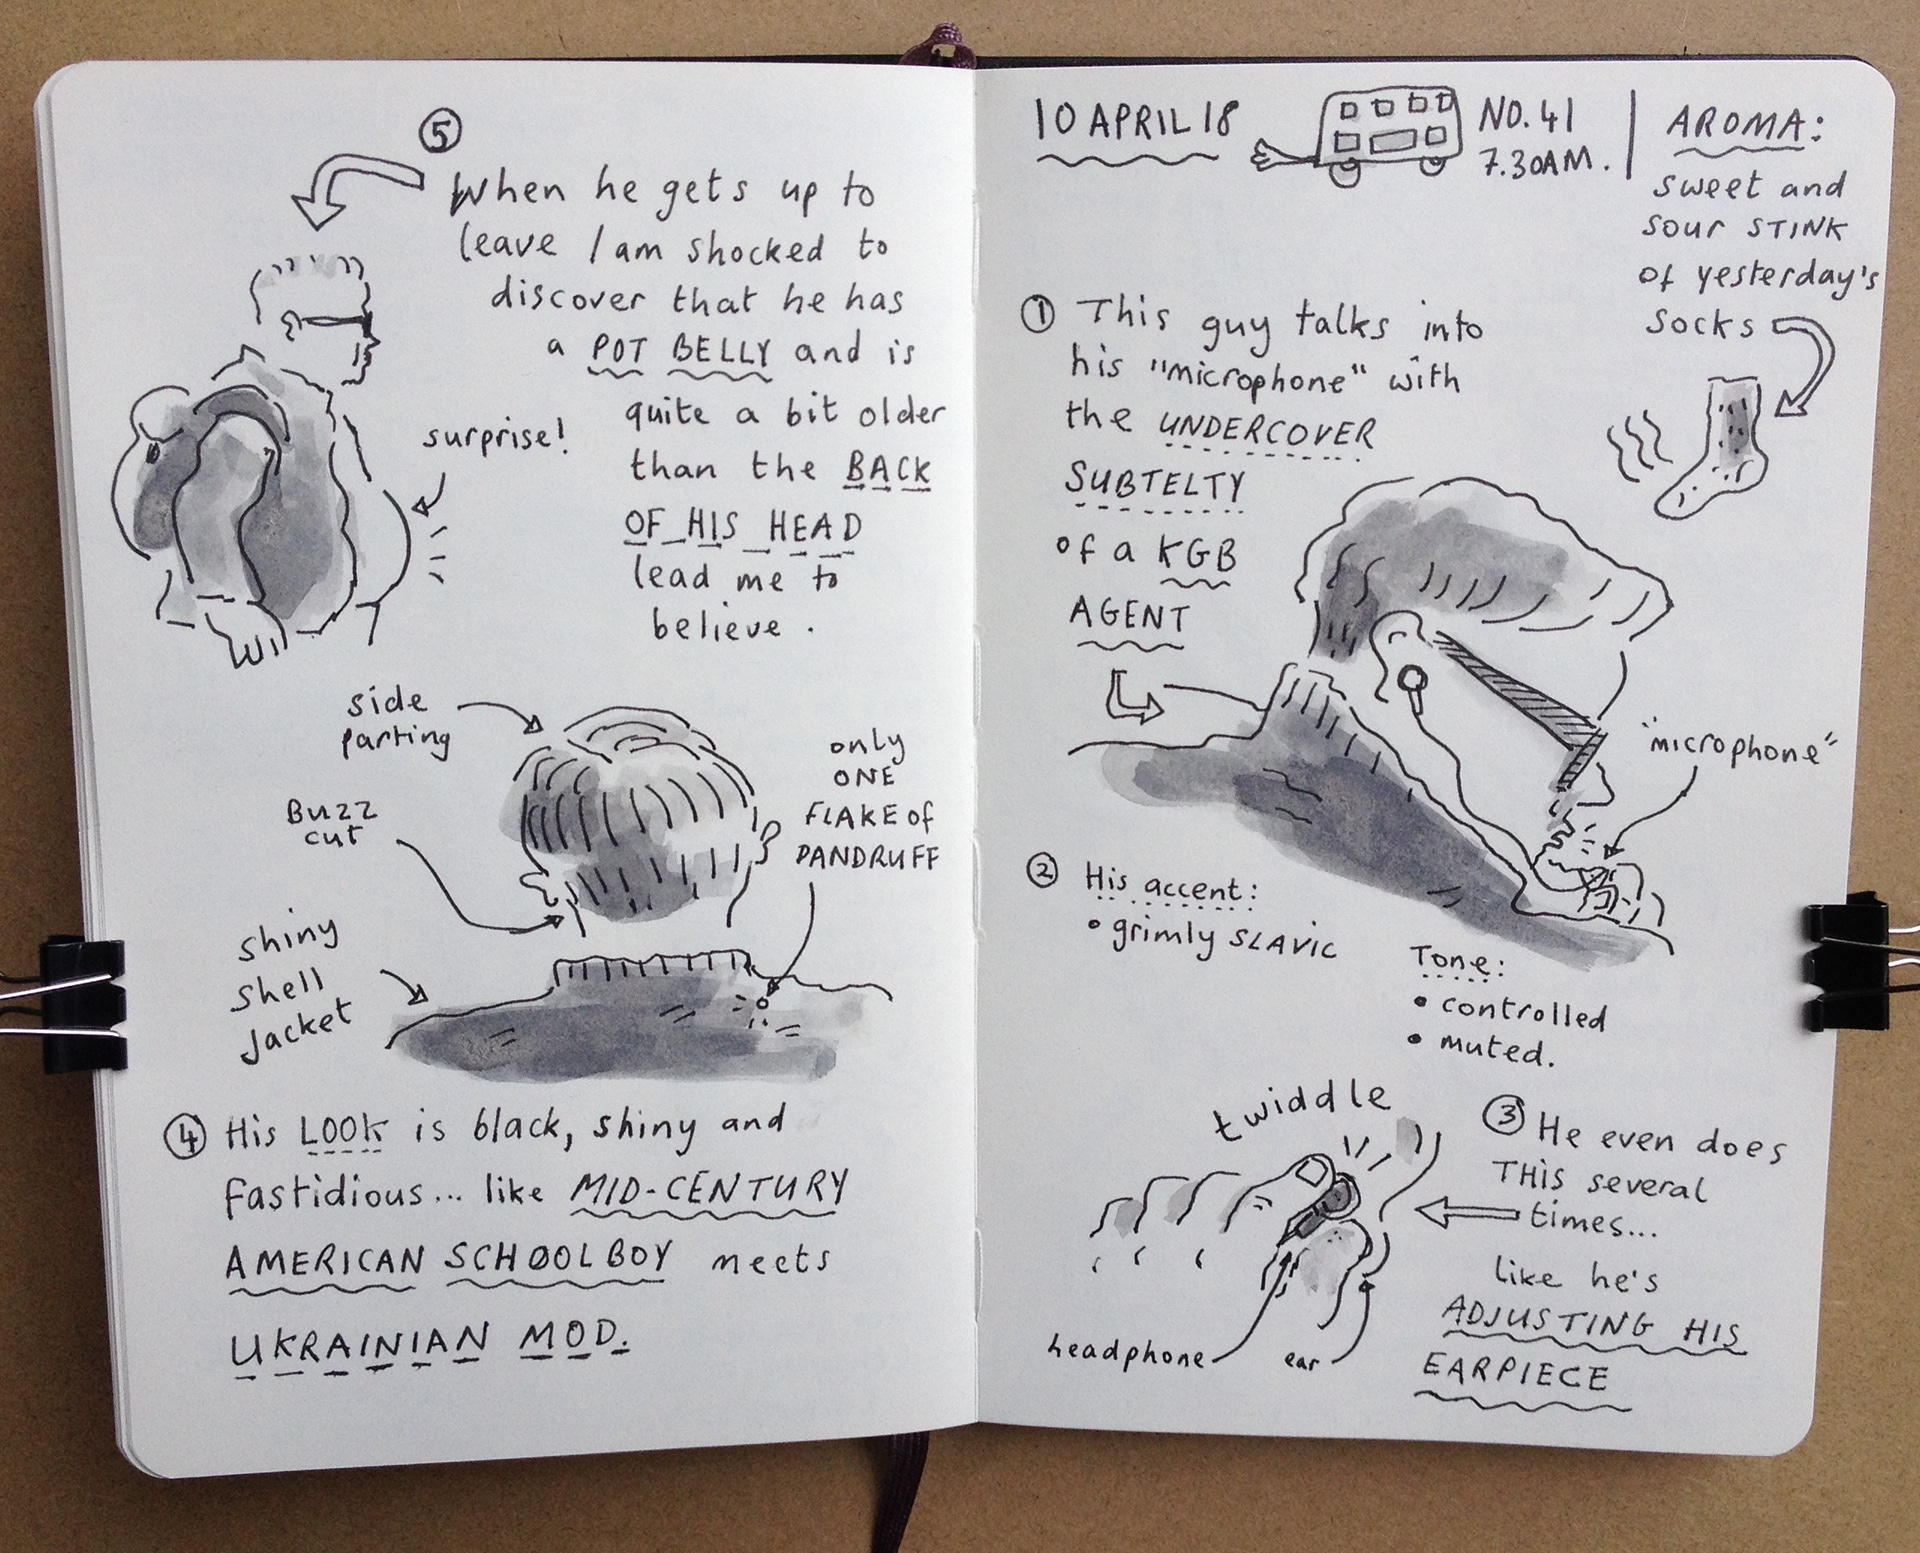 10 APRIL 18
NO. 41
7.30AM.
AROMA:
sweet and
sour STINK
of yesterday's
socks
① This guy talks into
his "microphone" with
the UNDERCOVER
SUBTELTY
of a KGB
AGENT
"microphone"
② His accent:
• grimly SLAVIC
Tone:
• controlled
• muted.
twiddle
③ He even does
THIS several
times...
like he's
ADJUSTING HIS
EARPIECE
headphone
ear
④ His LOOK is black, shiny and
fastidious... like MID-CENTURY
AMERICAN SCHOOLBOY meets
UKRAINIAN MOD.
side
parting
Buzz
cut
shiny
shell
jacket
only
ONE
FLAKE of
DANDRUFF
⑤
When he gets up to
leave I am shocked to
discover that he has
a POT BELLY and is
quite a bit older
than the BACK
OF HIS HEAD
lead me to
believe.
surprise!